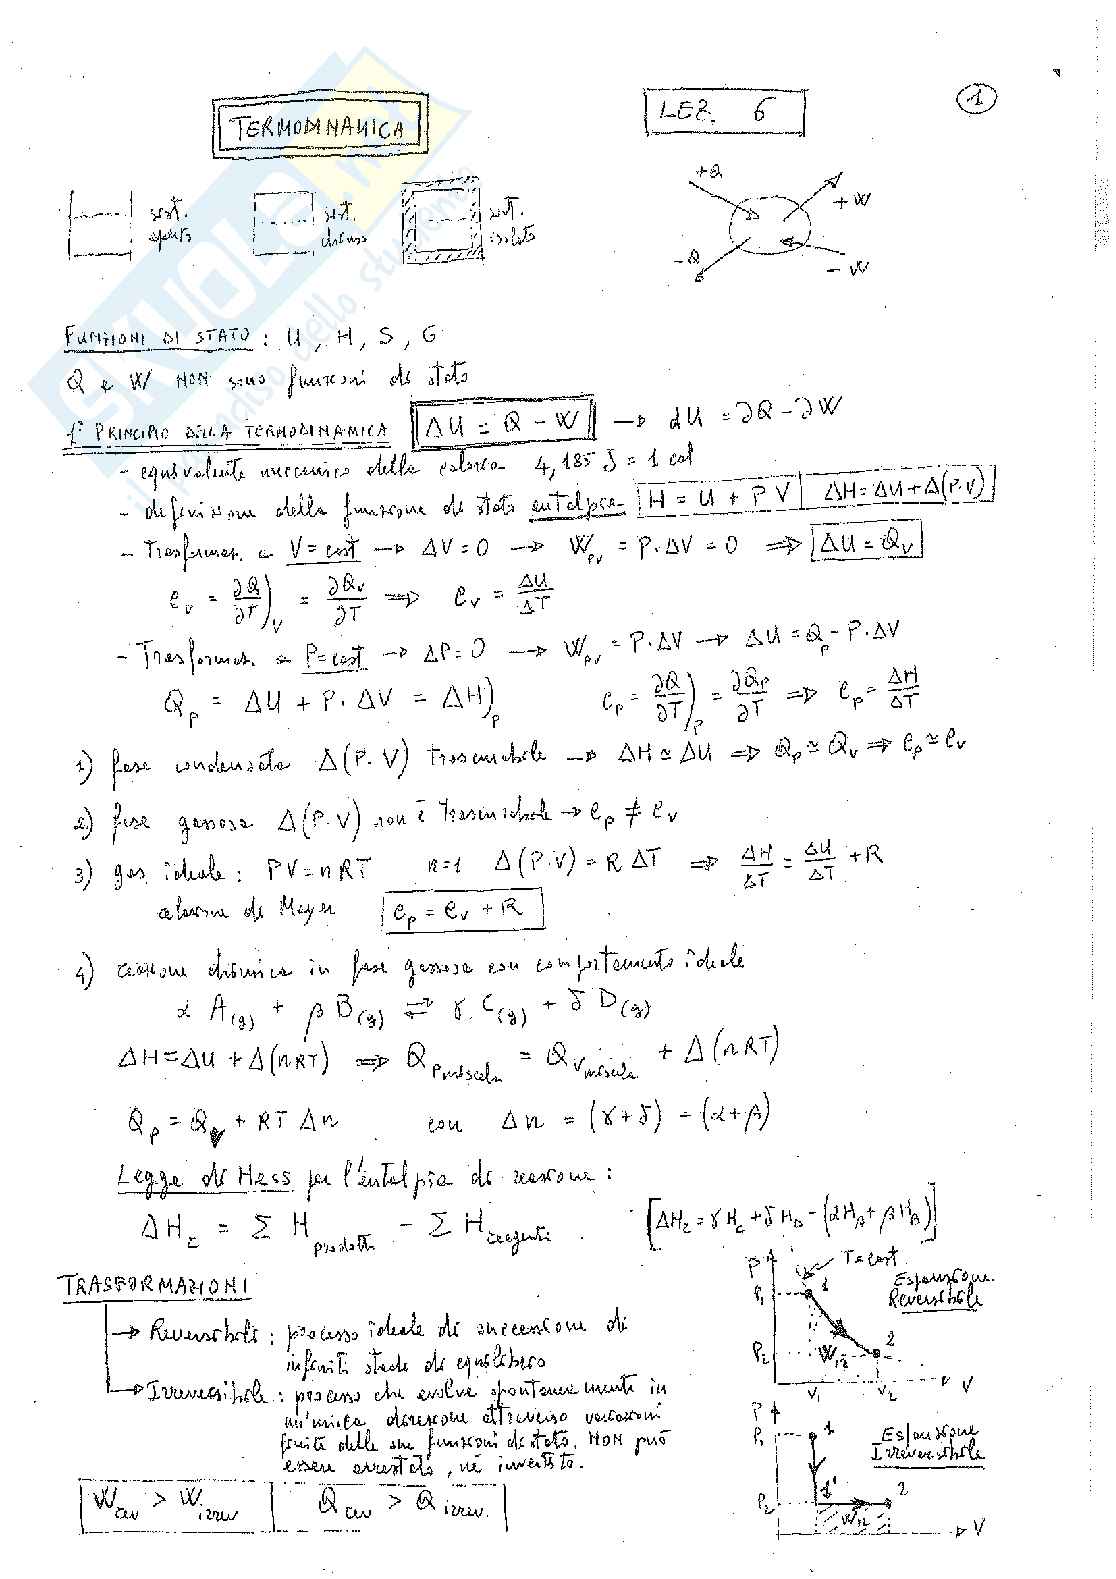 TERMODINAMICA
LEZ. 6
1
sist. aperto
sist. chiuso
sist. isolato
+Q
+W
-Q
- W
FUNZIONI DI STATO : U , H , S , G
Q e W NON sono funzioni di stato
1° PRINCIPIO DELLA TERMODINAMICA ΔU = Q - W → dU = ∂Q - ∂W
- equivalente meccanico della caloria 4,185 J = 1 cal
- definizione della funzione di stato entalpia H = U + P V ΔH = ΔU + Δ(P·V)
- Trasformaz. a V = cost → ΔV = 0 → W_PV = P·ΔV = 0 ⇒ ΔU = Q_V
C_V = ∂Q/∂T)_V = ∂Q_V/∂T ⇒ C_V = ΔU/ΔT
- Trasformaz. a P = cost → ΔP = 0 → W_PV = P·ΔV → ΔU = Q_P - P·ΔV
Q_P = ΔU + P·ΔV = ΔH)_P C_P = ∂Q/∂T)_P = ∂Q_P/∂T ⇒ C_P = ΔH/ΔT
1) fase condensata Δ(P·V) trascurabile → ΔH ≃ ΔU ⇒ Q_P ≃ Q_V ⇒ C_P ≃ C_V
2) fase gassosa Δ(P·V) non è trascurabile → C_P ≠ C_V
3) gas ideale : PV = nRT n=1 Δ(P·V) = R ΔT ⇒ ΔH/ΔT = ΔU/ΔT + R
relazione di Mayer C_P = C_V + R
4) reazione chimica in fase gassosa con comportamento ideale
α A(g) + β B(g) ⇄ γ C(g) + δ D(g)
ΔH = ΔU + Δ(nRT) ⇒ Q_P miscela = Q_V miscela + Δ(nRT)
Q_P = Q_V + RT Δn con Δn = (γ+δ) - (α+β)
Legge di Hess per l'entalpia di reazione :
ΔH_r = Σ H_prodotti - Σ H_reagenti . [ΔH_r = γ H_C + δ H_D - (αH_A + β H_B)]
TRASFORMAZIONI
→ Reversibili : processo ideale di successione di
infiniti stadi di equilibrio
→ Irreversibile : processo che evolve spontaneamente in
un'unica direzione attraverso variazioni
finite delle sue funzioni di stato. NON può
essere arrestato, né invertito.
W_rev > W_irrev Q_rev > Q_irrev.
P
T=cost
Espansione
Reversibile
P1
1
2
P2
W12
V1 V2 V
P
P1
1
Espansione
Irreversibile
P2
1'
2
W12
V
SKUOLA.net
il paradiso dello studente